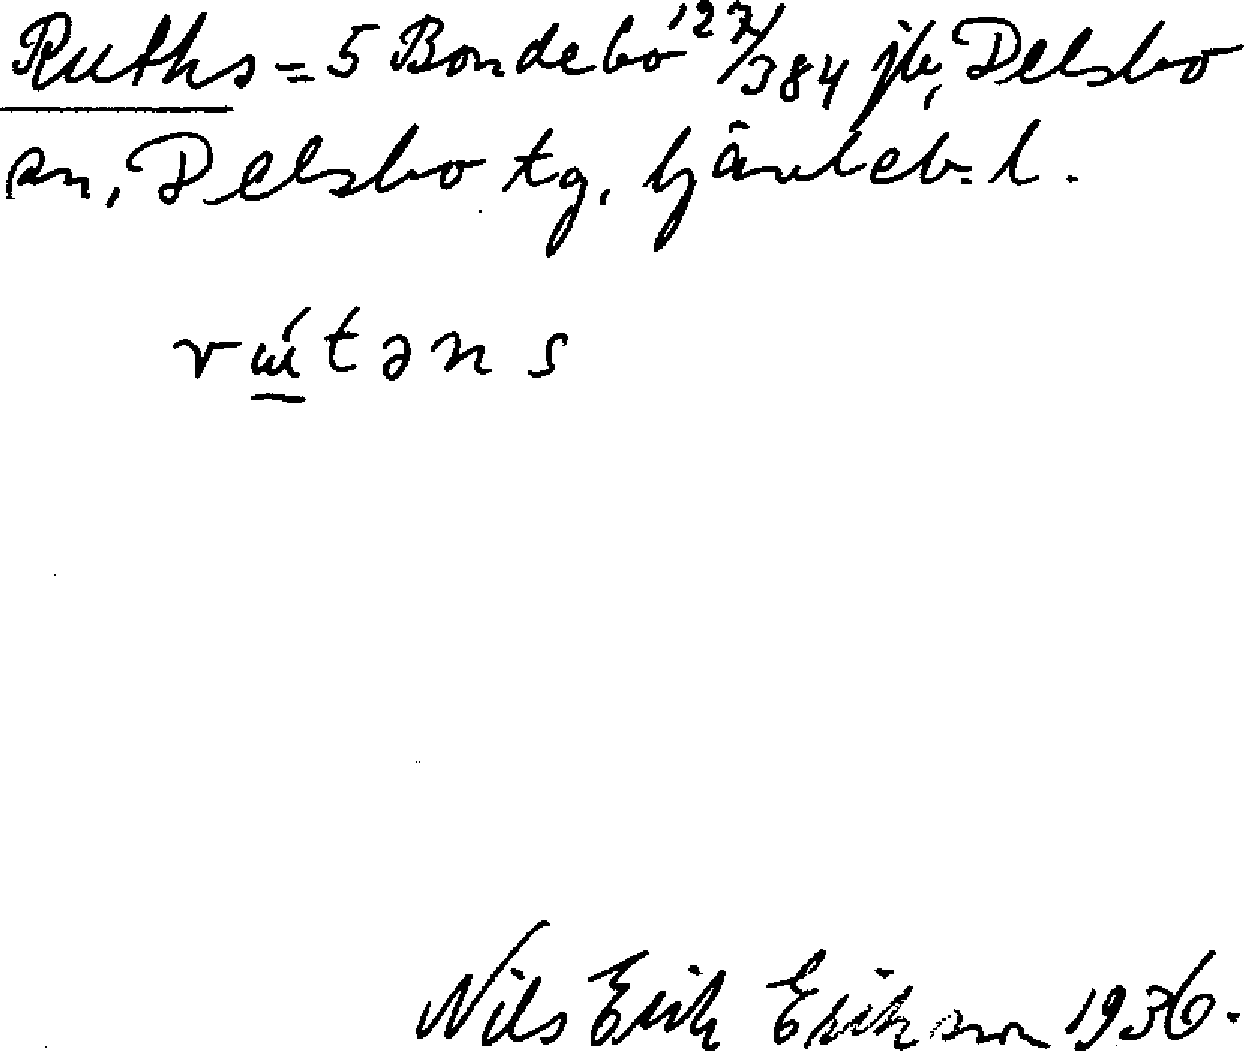 Ruths = 5 Bondebo 127/384 jb, Delsbo
sn, Delsbo tg, Gävleb. l.
vɯ́təns
Nils Erik Erikson 1936.